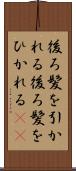 後ろ髪を引か
れる後ろ髪を
ひかれる